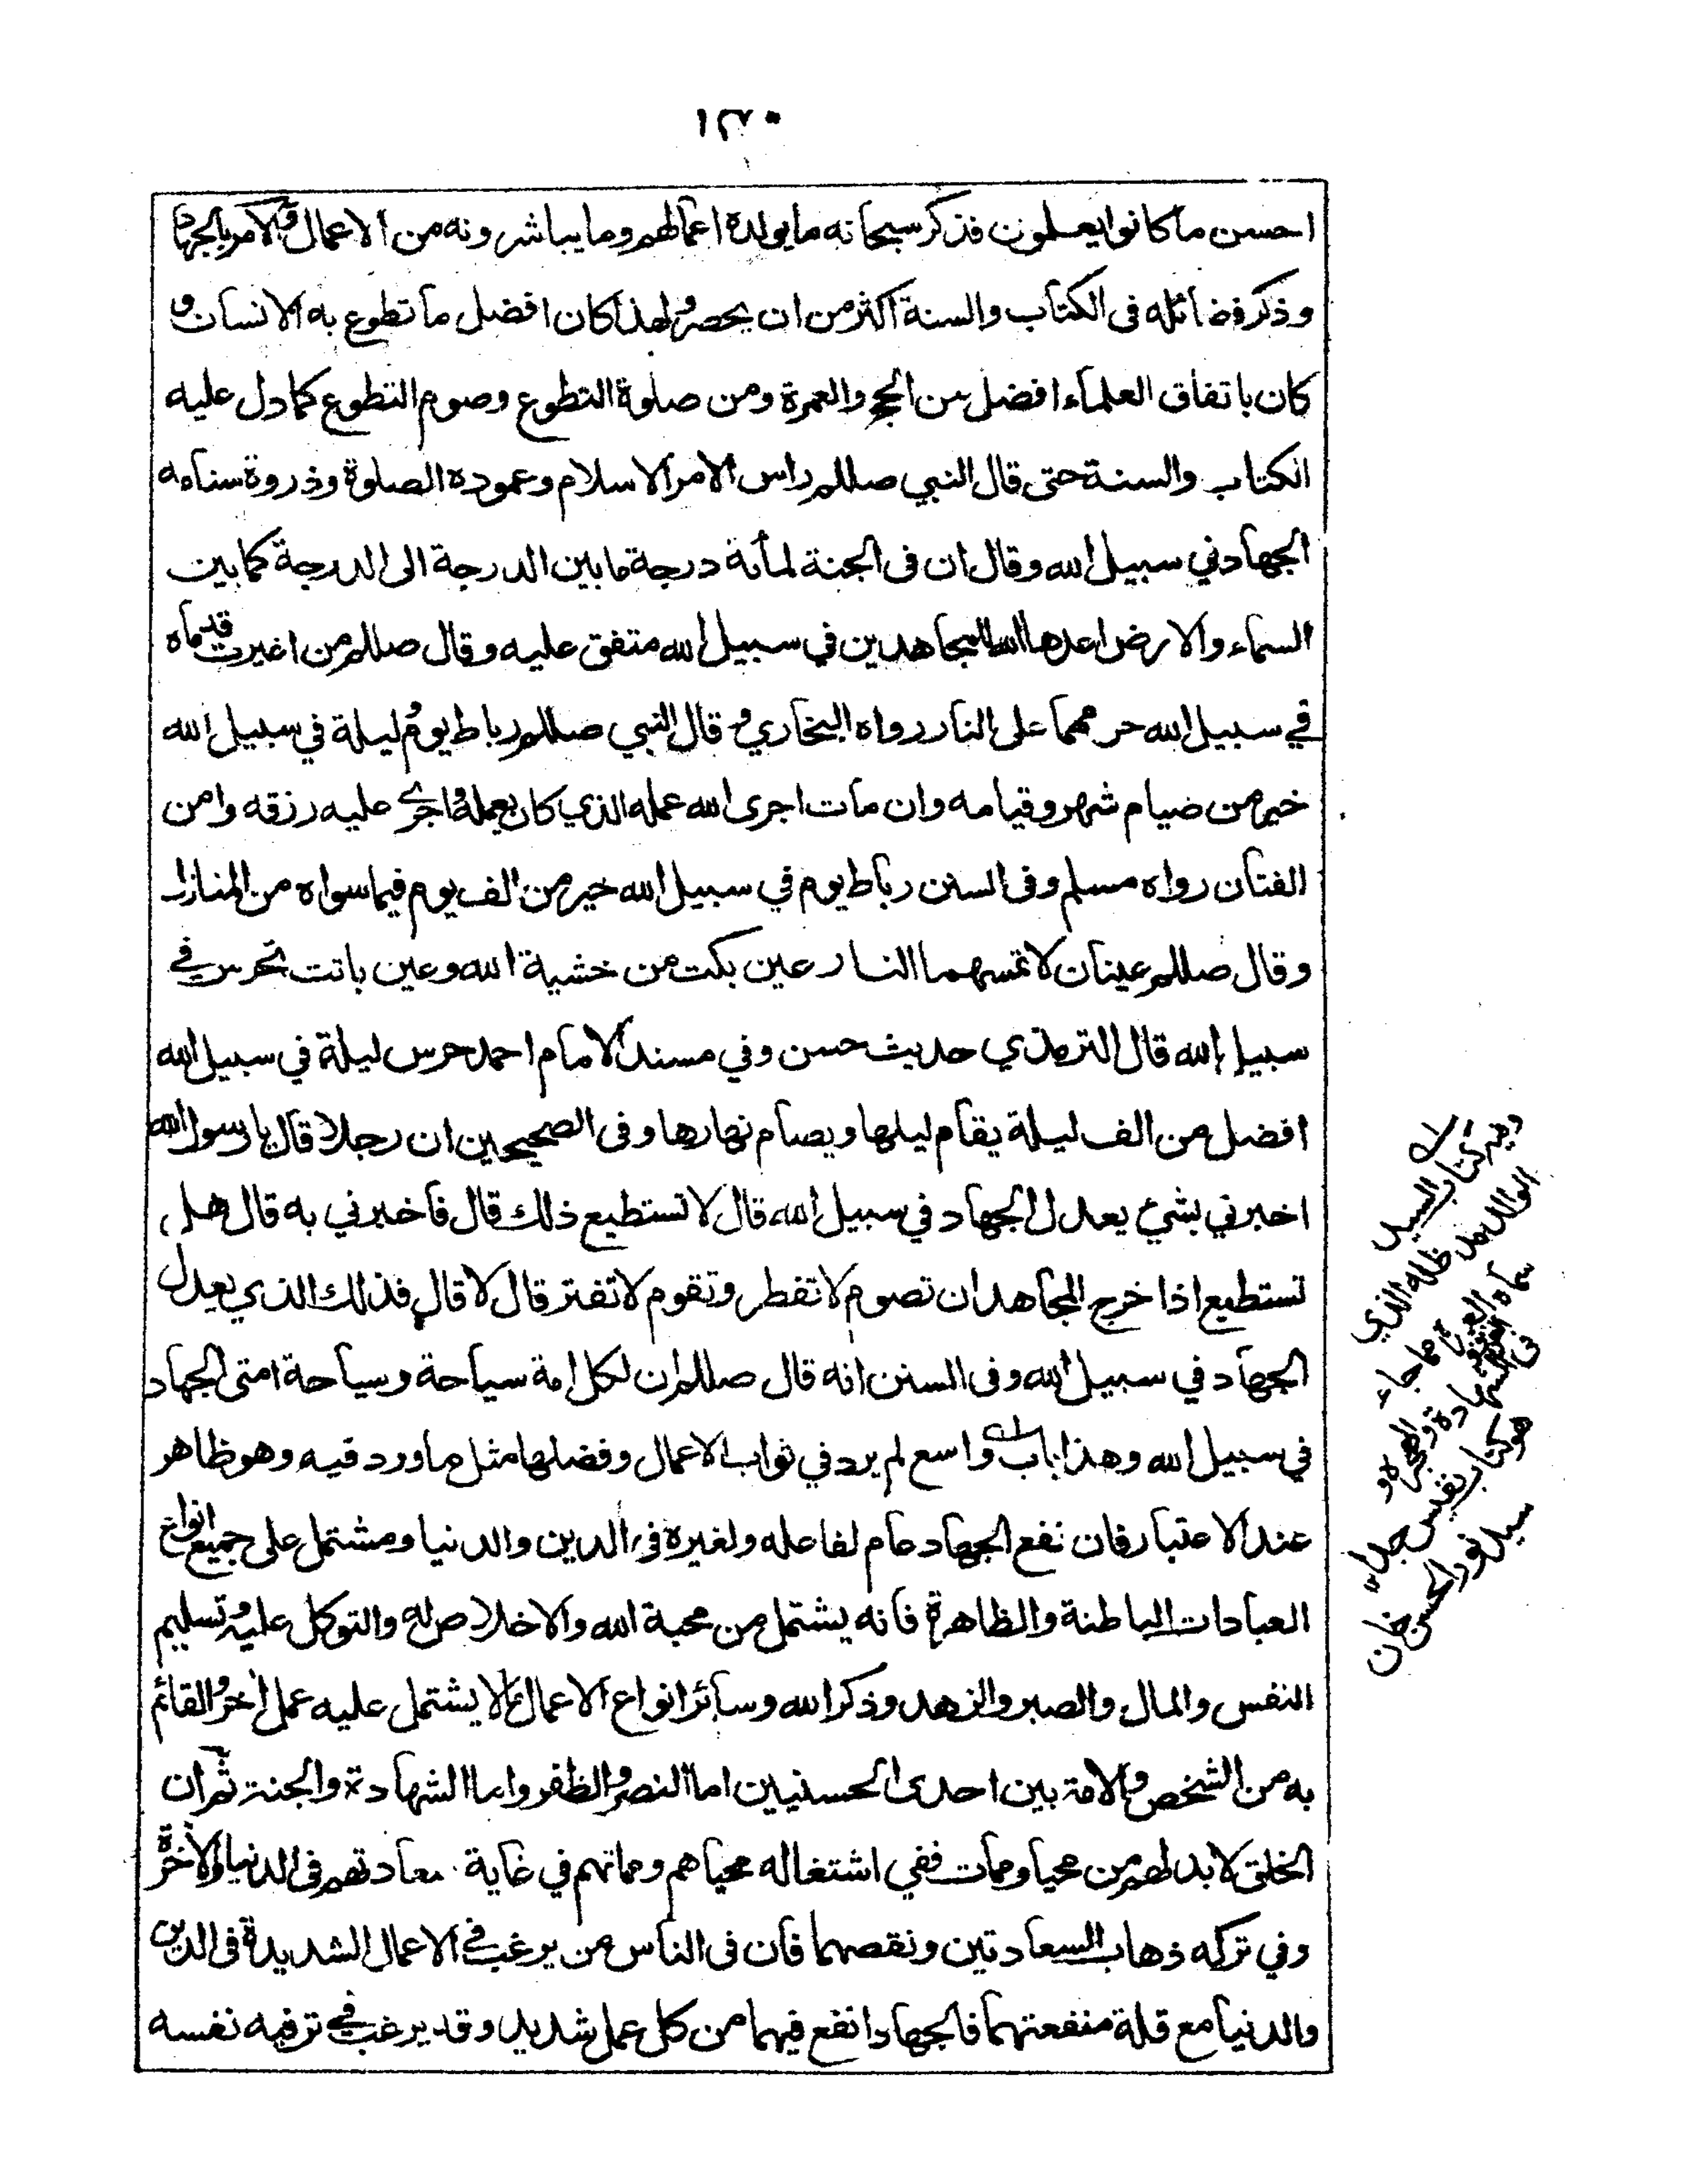 احسن ما كانوا يعملون فذكر سبحانه ما يولده اعمالهم وما يباشرونه من الاعمال والامر بالجهاد
وذكر فضائله فى الكتاب والسنة اكثر من ان يحصر ولهذا كان افضل ما تطوع به الانسان و
كان باتفاق العلماء افضل من الحج والعمرة ومن صلوة التطوع وصوم التطوع كما دل عليه
الكتاب والسنة حتى قال النبي صللم راس الامر الاسلام وعموده الصلوة وذروة سنامه
الجهاد في سبيل الله وقال ان فى الجنة لمأئة درجة ما بين الدرجة الى الدرجة كما بين
السماء والارض اعدها الله للمجاهدين في سبيل الله متفق عليه وقال صللم من اغبرت قدماه
في سبيل الله حرمهما على النار رواه البخاري وقال النبي صللم رباط يوم وليلة في سبيل الله
خير من صيام شهر وقيامه وان مات اجرى الله عمله الذي كان يعمله واجرى عليه رزقه وامن
الفتان رواه مسلم وفى السنن رباط يوم في سبيل الله خير من الف يوم فيما سواه من المنازل
وقال صللم عينان لا تمسهما النار عين بكت من خشية الله وعين باتت تحرس في
سبيل الله قال الترمذي حديث حسن وفي مسند الامام احمد حرس ليلة في سبيل الله
افضل من الف ليلة يقام ليلها ويصام نهارها وفى الصحيحين ان رجلا قال يا رسول الله
اخبرني بشئ يعدل الجهاد في سبيل الله قال لا تستطيع ذلك قال فاخبرني به قال هل
تستطيع اذا خرج المجاهد ان تصوم لا تفطر وتقوم لا تفتر قال لا قال فذلك الذي يعدل
الجهاد في سبيل الله وفى السنن انه قال صللم ان لكل امة سياحة وسياحة امتى الجهاد
في سبيل الله وهذا باب واسع لم يرد في ثواب الاعمال وفضلها مثل ما ورد فيه وهو ظاهر
عند الاعتبار فان نفع الجهاد عام لفاعله ولغيره فى الدين والدنيا ومشتمل على جميع انواع
العبادات الباطنة والظاهرة فانه يشتمل من محبة الله والاخلاص له والتوكل عليه وتسليم
النفس والمال والصبر والزهد وذكر الله وسائر انواع الاعمال لا يشتمل عليه عمل اخر والقائم
به من الشخص والامة بين احدى الحسنيين اما النصر والظفر واما الشهادة والجنة ثم ان
الخلق لا بد لهم من محيا وممات ففي اشتغاله محياهم ومماتهم في غاية سعادتهم فى الدنيا والاخرة
وفي تركه ذهاب السعادتين ونقصهما فان فى الناس من يرغب في الاعمال الشديدة فى الدين
والدنيا مع قلة منفعتهما فالجهاد انفع فيهما من كل عمل شديد وقد يرغب في ترفيه نفسه
وفيه كتاب السيد
الوالد مد ظله الذي
سماه العبرة مما جاء
فى الغزو والشهادة والهجرة و
هو كتاب نفيس جدا
سيد نور الحسن خان